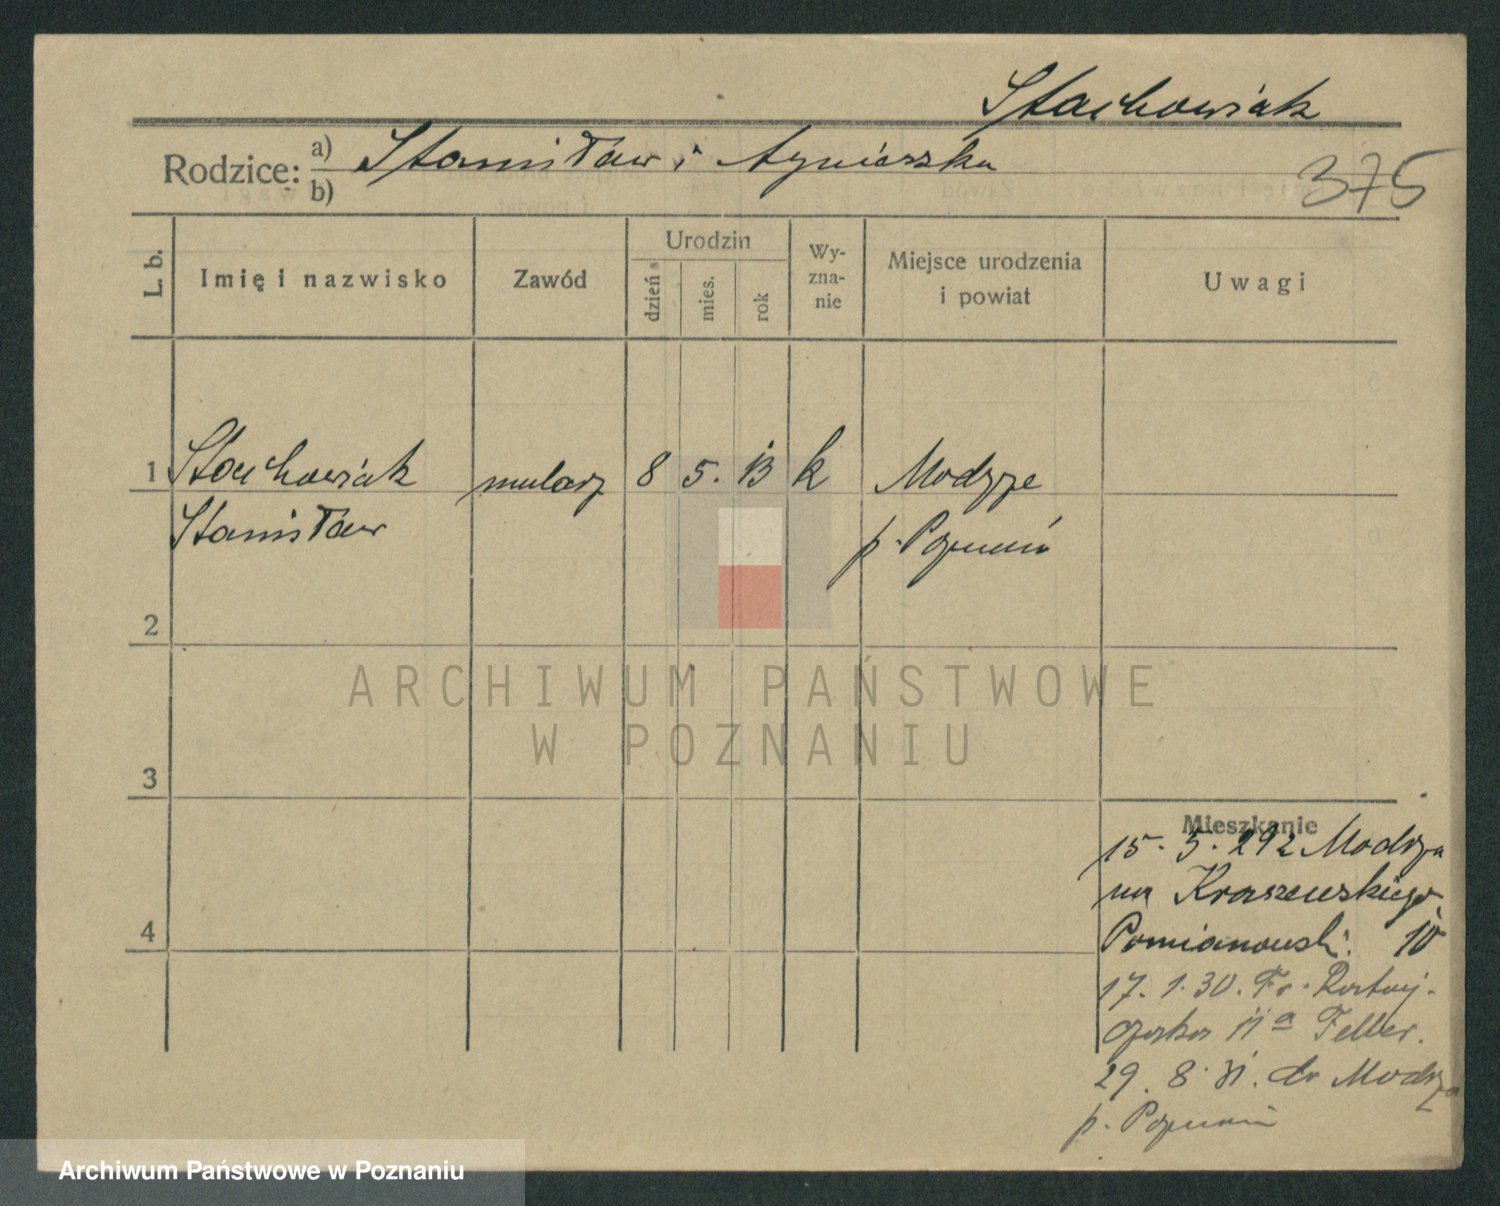 Stachowiak
Rodzice: a) Stanisław i Agnieszka
b)
375
L. b.
Imię i nazwisko
Zawód
Urodzin
dzień
mies.
rok
Wy-
zna-
nie
Miejsce urodzenia
i powiat
Uwagi
1 Stachowiak mularz 8 5. 13 k Modrze
Stanisław p. Poznań
2
3
4
ARCHIWUM PAŃSTWOWE
W POZNANIU
Mieszkanie
15. 5. 29 z Modrza
na Kraszewskiego
Pomianowski. 10
17. 1. 30. Fr. Rataj-
czaka 11a Feller.
29. 8. 31. do Modrza
p. Poznań
Archiwum Państwowe w Poznaniu